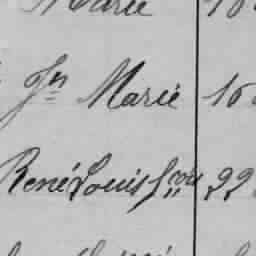 Marie
Jn Marie 16
René Louis Scois 22